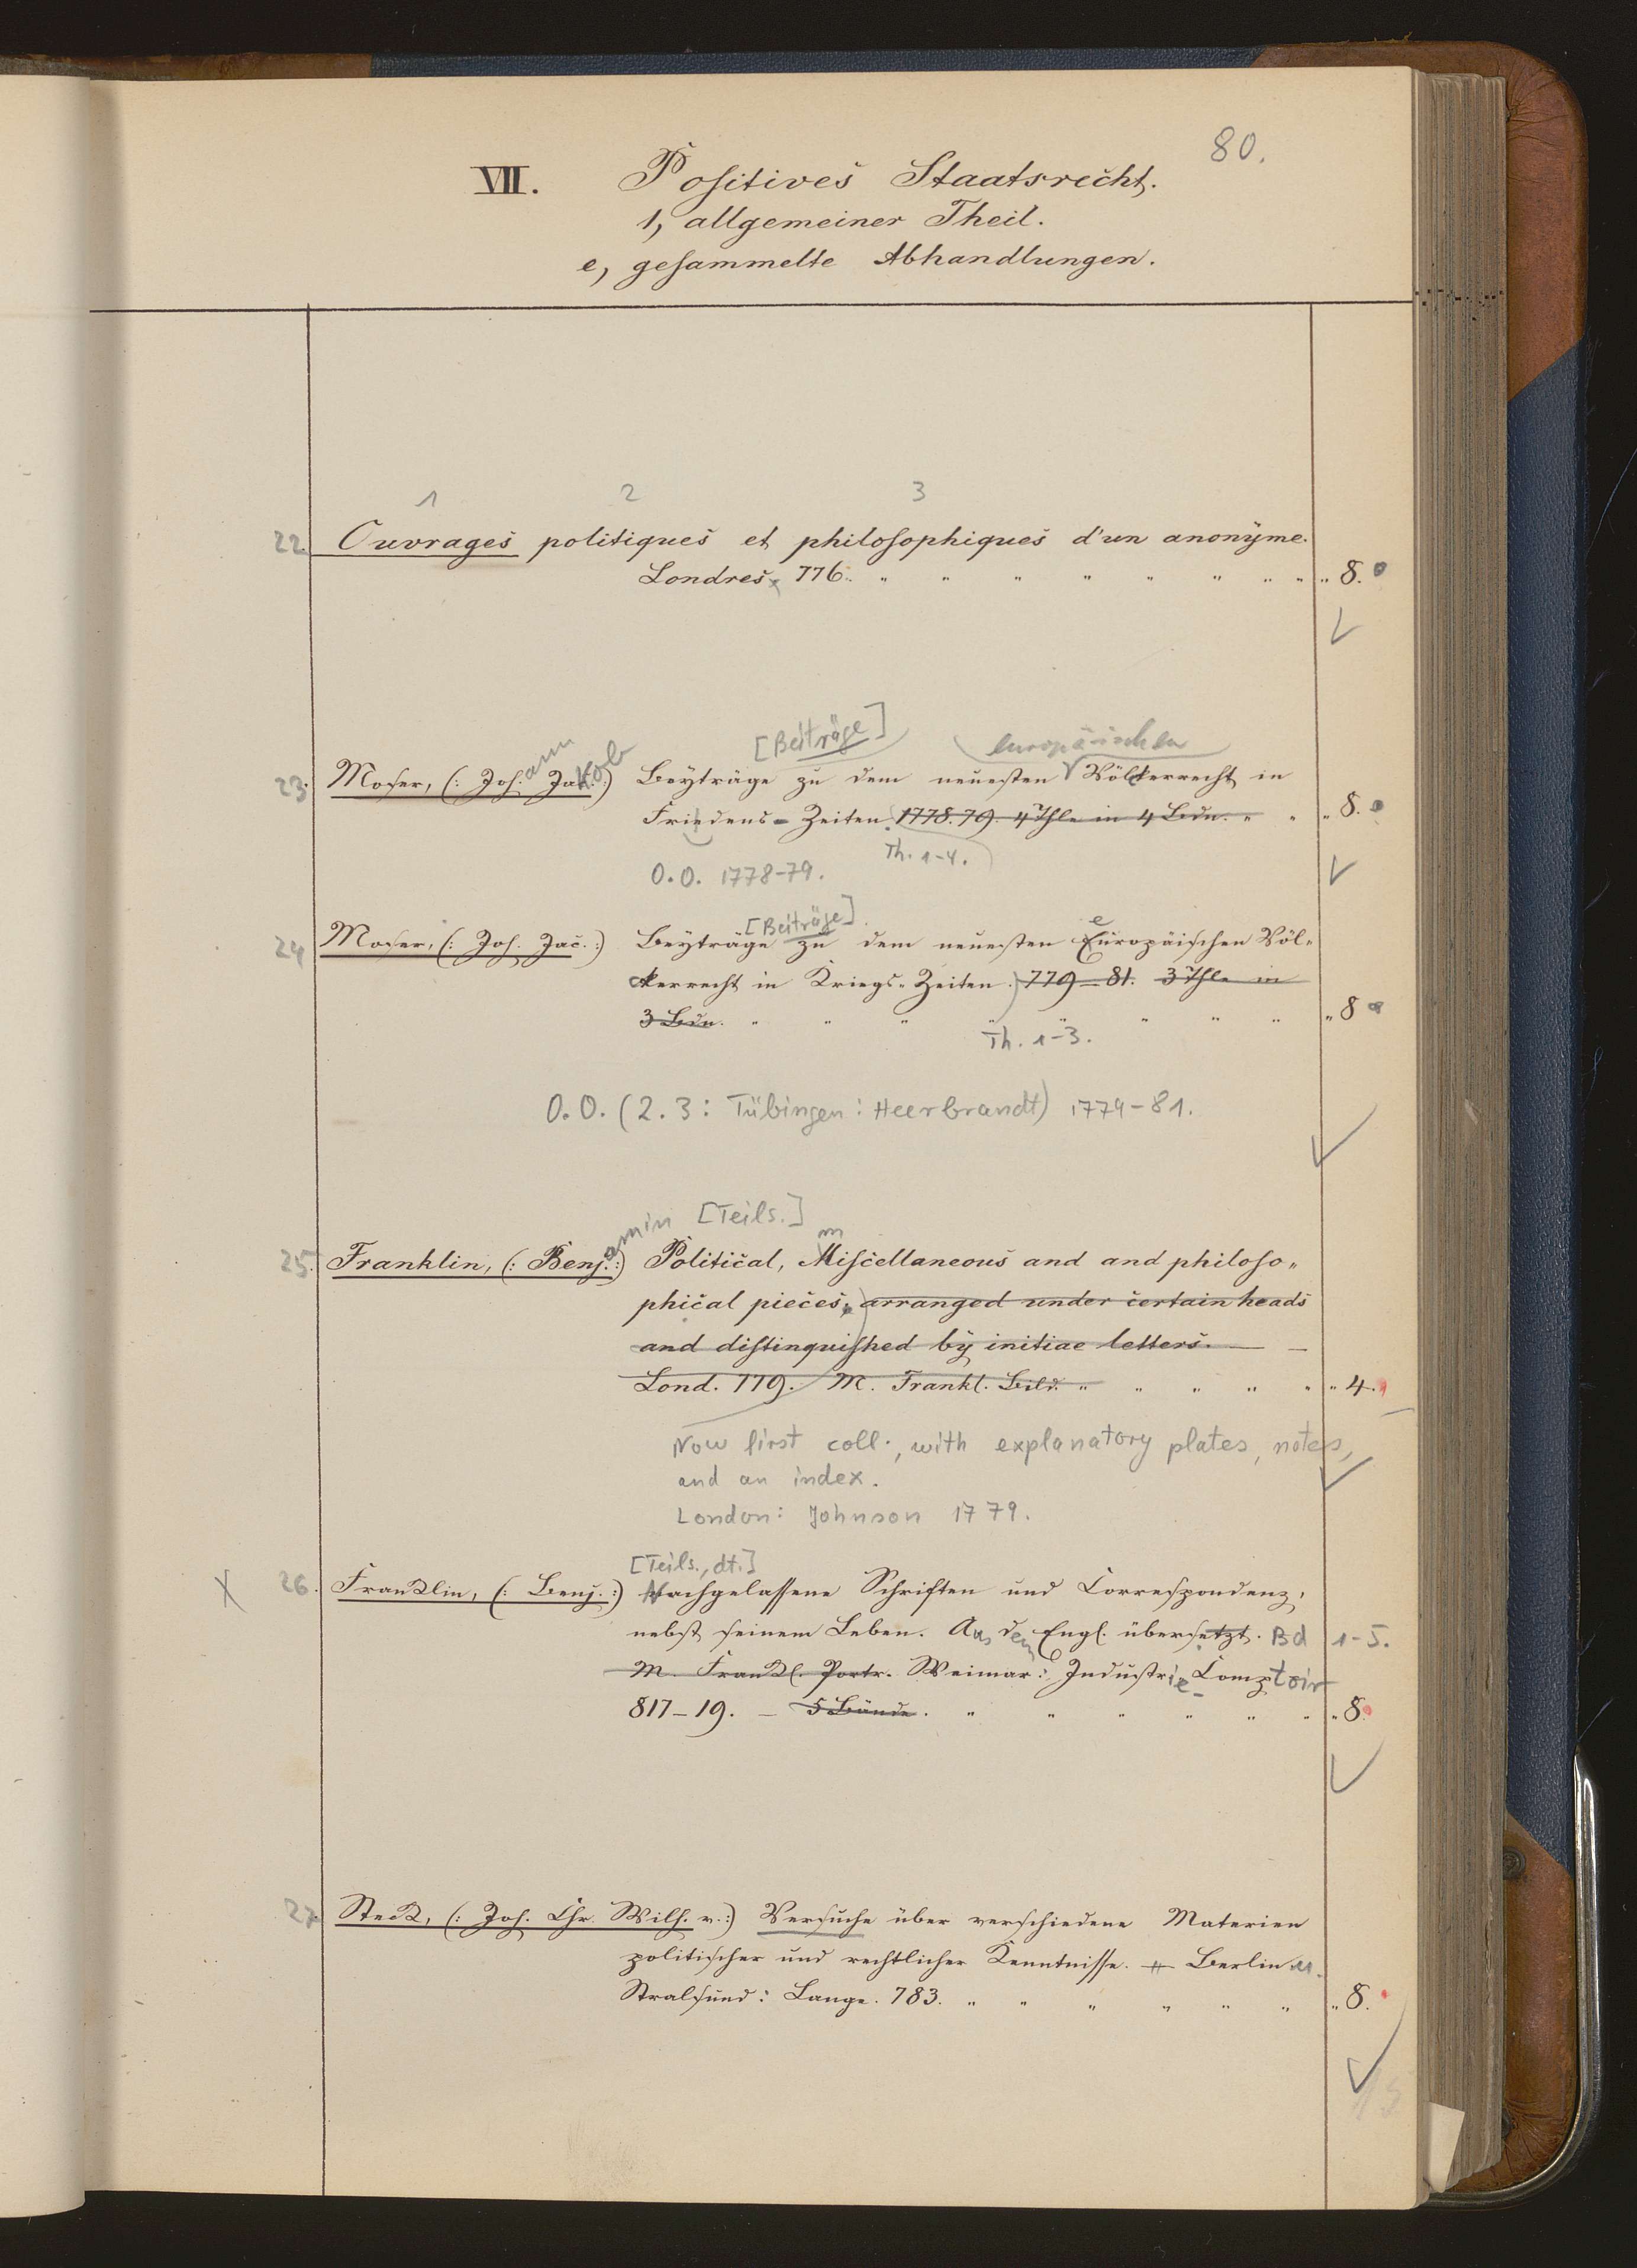 80.
VII. Positives Staatsrecht.
1, allgemeiner Theil.
e, gesammelte Abhandlungen.
1 2 3
22. Ouvrages politiques et philosophiques d'un anonÿme.
Londres, 776. " " " " " " " " " 8.
[Beiträge] europäischen
23. Moser, (: Joh.ann Jakob :) Beyträge zu dem neuesten Völkerrecht in
Friedens-Zeiten. 1778.79. 4 Thle in 4 Bdn. " " " 8.
Th. 1-4.
O.O. 1778-79.
[Beiträge] e
24 Moser, (: Joh. Jac. :) Beyträge zu dem neuesten Europäischen Völ-
kerrecht in Kriegs-Zeiten. 779-81. 3 Thle in
3 Bdn. " " " " " " " " " 8
Th. 1-3.
O.O. (2.3: Tübingen: Heerbrandt) 1779-81.
[Teils.] m
25. Franklin, (: Benj.amin :) Political, Miscellaneous and and philoso-
phical pieces, arranged under certain heads
and distinguished by initiae letters. — —
Lond. 779. M. Frankl. Bild. " " " " " " 4.
Now first coll., with explanatory plates, notes,
and an index.
London: Johnson 1779.
[Teils., dt.]
X 26. Franklin, (: Benj. :) Nachgelassene Schriften und Correspondenz,
nebst seinem Leben. Aus dem Engl. übersetzt. Bd 1-5.
M. Frankl. Portr. Weimar: Industrie-Comptoir
817-19. — 5 Bände. " " " " " " " 8.
27. Steck, (: Joh. Chr. Wilh. v. :) Versuche über verschiedene Materien
politischer und rechtlicher Kenntnisse. Berlin u.
Stralsund: Lange. 783. " " " " " " " 8.